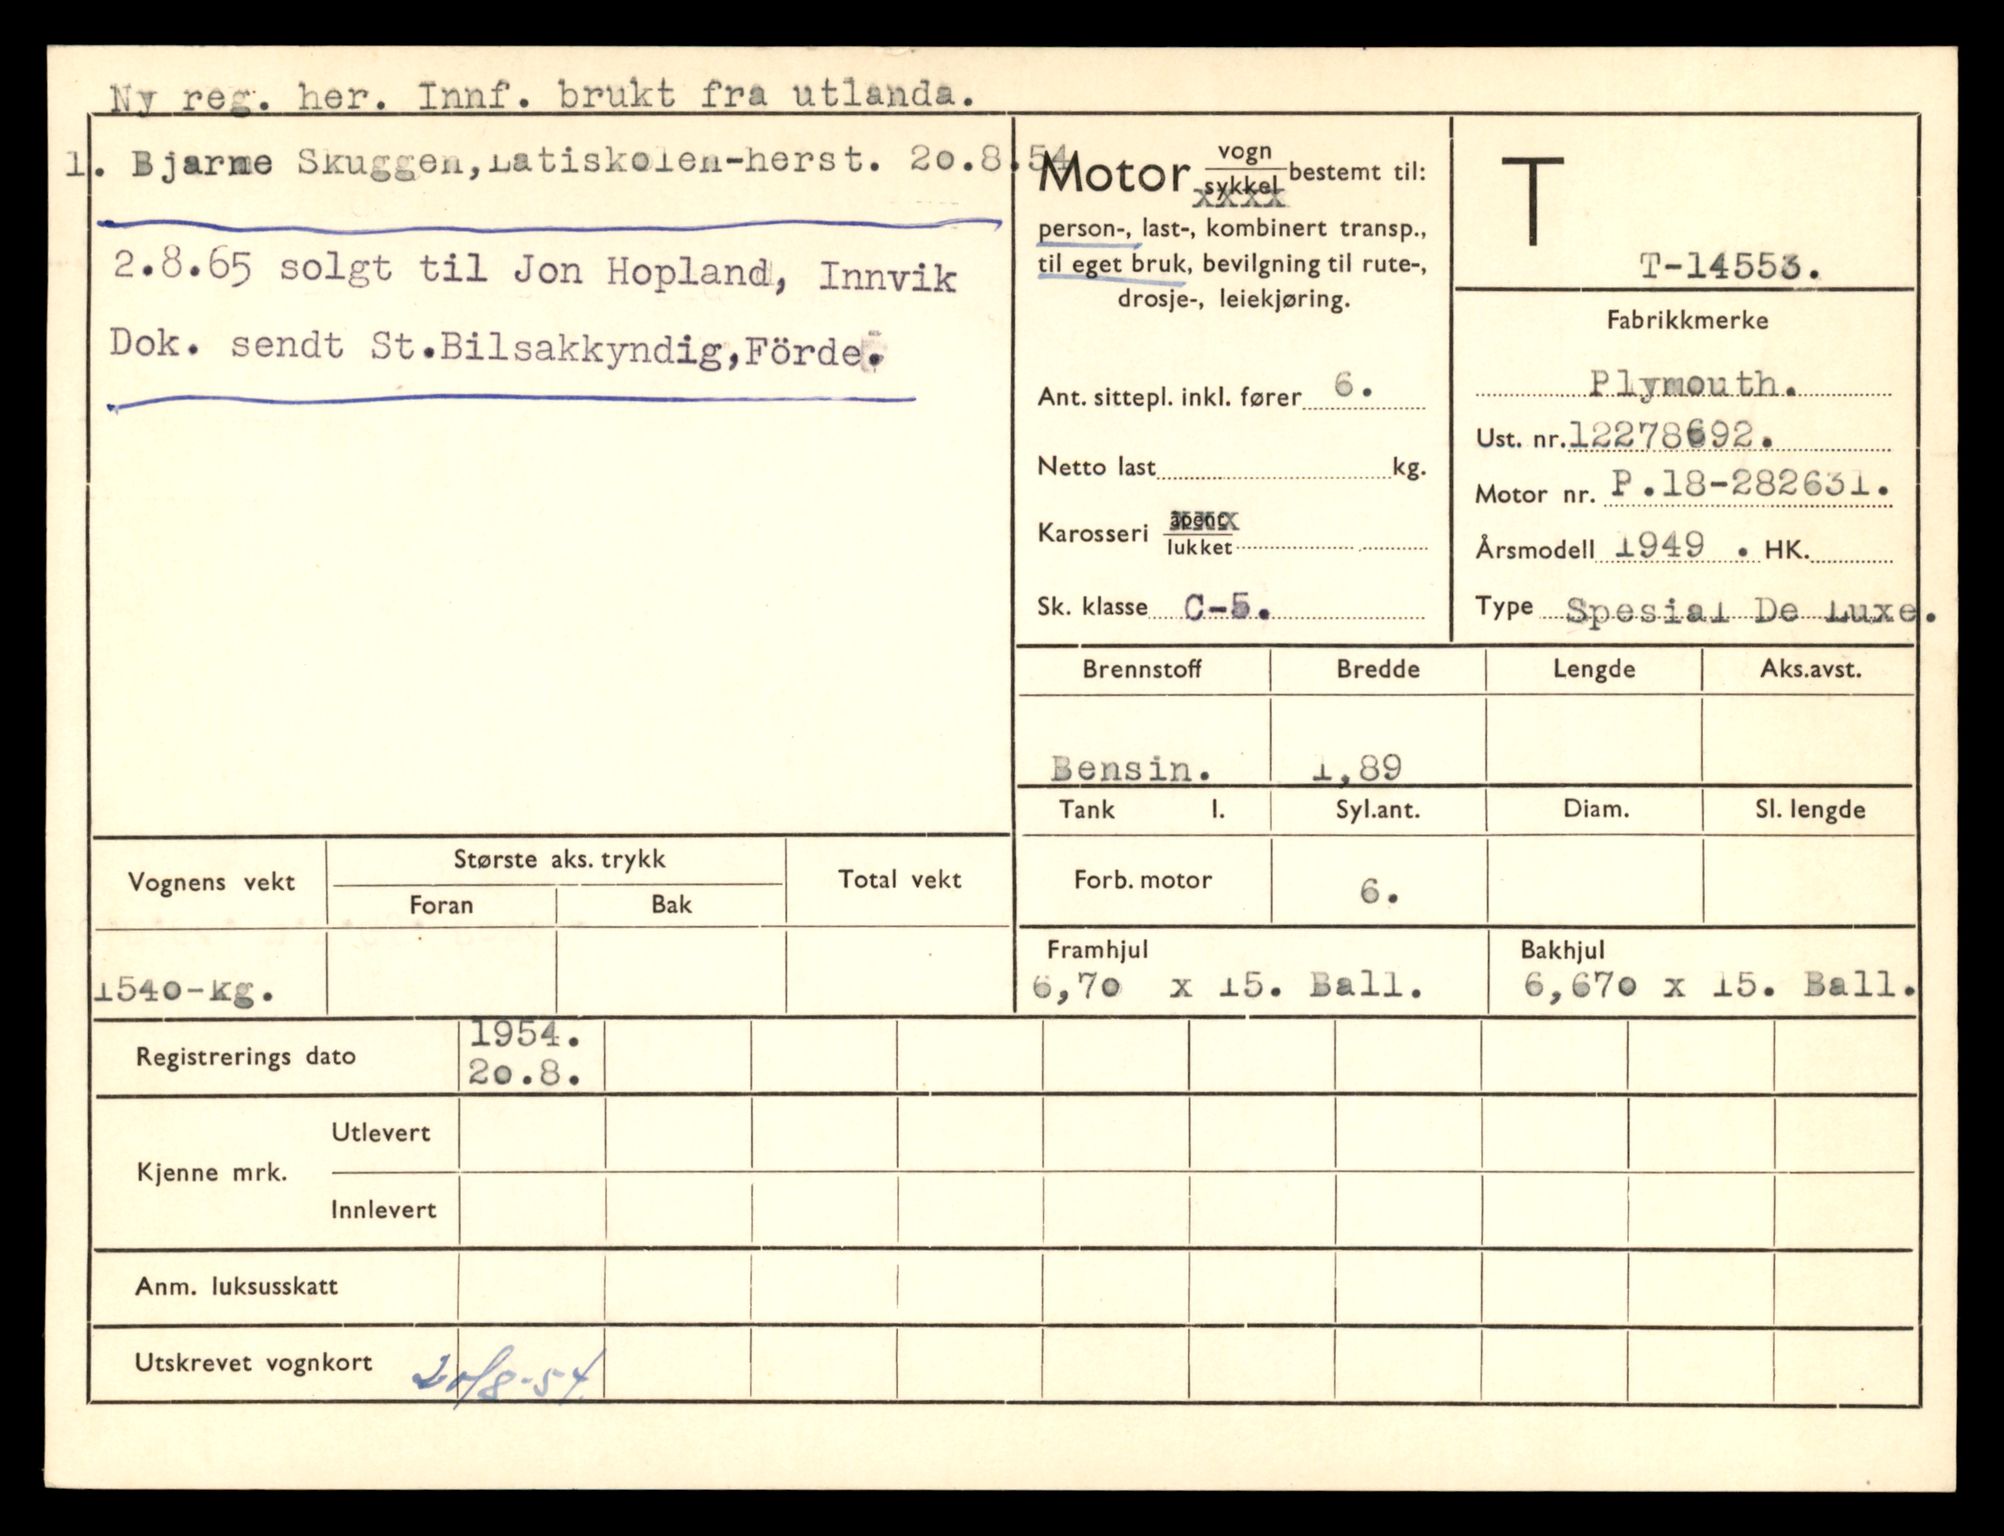 Ny reg. her. Innf. brukt fra utlanda.
1. Bjarne Skuggen,Latiskolen-herst. 20.8.54
2.8.65 solgt til Jon Hopland, Innvik
Dok. sendt St.Bilsakkyndig,Förde.
Motor vogn
sykkel bestemt til:
xxxx
person-, last-, kombinert transp.,
til eget bruk, bevilgning til rute-,
drosje-, leiekjøring.
Ant. sittepl. inkl. fører 6.
Netto last kg.
Karosseri åpent
xxxx
lukket
Sk. klasse C-5.
T
T-14553.
Fabrikkmerke
Plymouth.
Ust. nr. 12278692.
Motor nr. P.18-282631.
Årsmodell 1949 . HK.
Type Spesial De Luxe.
Brennstoff Bredde Lengde Aks.avst.
Bensin. 1,89
Tank l. Syl.ant. Diam. Sl. lengde
Forb. motor 6.
Framhjul Bakhjul
6,70 x 15. Ball. 6,670 x 15. Ball.
Vognens vekt Største aks. trykk Total vekt
Foran Bak
1540-kg.
Registrerings dato 1954.
20.8.
Kjenne mrk. Utlevert
Innlevert
Anm. luksusskatt
Utskrevet vognkort 20/8-54.